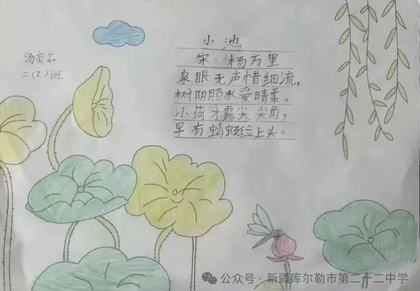 小池
宋·杨万里
泉眼无声惜细流,
树阴照水爱晴柔。
小荷才露尖尖角,
早有蜻蜓立上头。
二(3)班
公众号·新疆库尔勒市第二十二中学